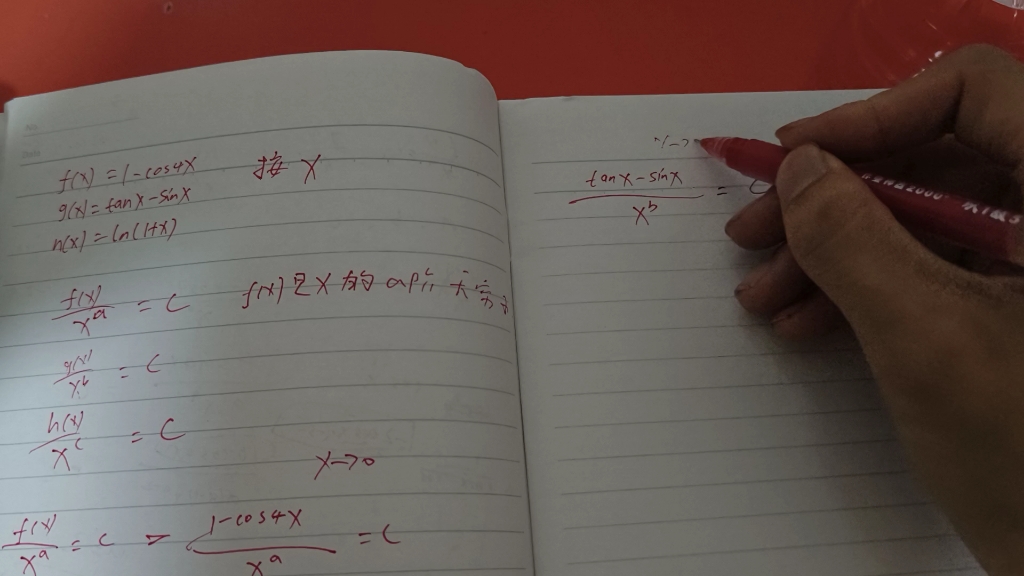 f(x) = 1-cos4x 接 x
g(x) = tanx-sinx
h(x) = ln(1+x)
f(x)/x^a = c f(x)是x的a阶无穷
g(x)/x^b = c
h(x)/x^c = c
x→0
f(x)/x^a = c > 1-cos4x/x^a = c
tanx-sinx/x^b =